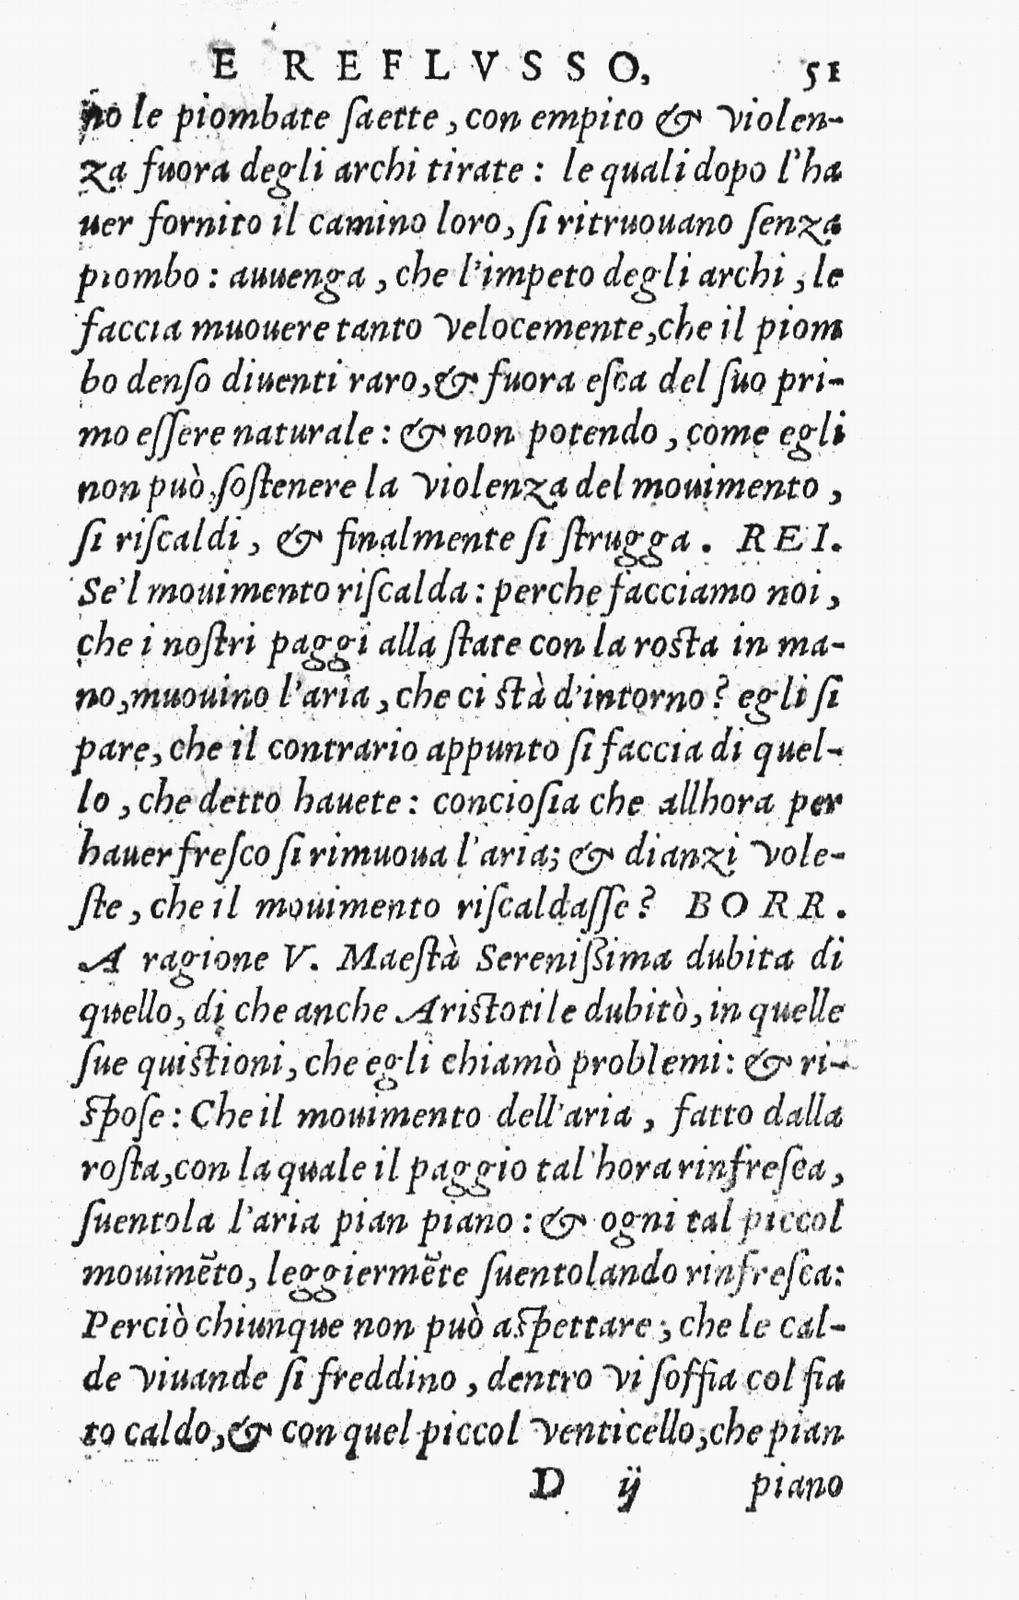 E REFLVSSO, 51
no le piombate ſaette, con empito & violen-
za fuora degli archi tirate: le quali dopo l'ha
uer fornito il camino loro, ſi ritruouano ſenza
piombo: auuenga, che l'impeto degli archi, le
faccia muouere tanto velocemente, che il piom
bo denſo diuenti raro, & fuora eſca del ſuo pri-
mo eſſere naturale: & non potendo, come egli
non può, ſoſtenere la violenza del mouimento,
ſi riſcaldi, & finalmente ſi ſtrugga. REI.
Se'l mouimento riſcalda: perche facciamo noi,
che i noſtri paggi alla ſtate con la roſta in ma-
no, muouino l'aria, che ci ſtà d'intorno? egli ſi
pare, che il contrario appunto ſi faccia di quel-
lo, che detto hauete: concioſia che allhora per
hauer freſco ſi rimuoua l'aria; & dianzi vole-
ſte, che il mouimento riſcaldaſſe? BORR.
A ragione V. Maeſtà Sereniſsima dubita di
quello, di che anche Ariſtotile dubitò, in quelle
ſue quiſtioni, che egli chiamò problemi: & ri-
ſpoſe: Che il mouimento dell'aria, fatto dalla
roſta, con la quale il paggio tal'hora rinfreſca,
ſuentola l'aria pian piano: & ogni tal piccol
mouimẽto, leggiermẽte ſuentolando rinfreſca:
Perciò chiunque non può aſpettare, che le cal-
de viuande ſi freddino, dentro vi ſoffia col fia
to caldo, & con quel piccol venticello, che pian
D ij piano